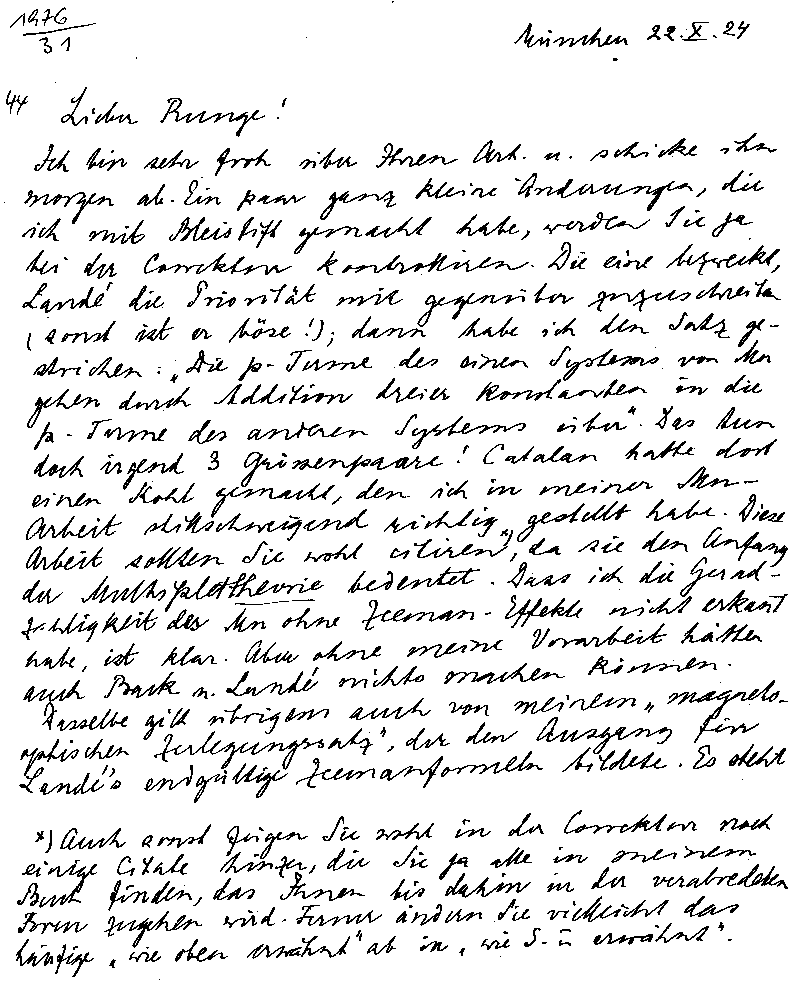 1976
31
München 22.X.24
44
Lieber Runge!
Ich bin sehr froh über Ihren Art. u. schicke ihn
morgen ab. Ein paar ganz kleine Änderungen, die
ich mit Bleistift gemacht habe, werden Sie ja
bei der Correktur kontrollieren. Die eine bezweckt,
Landé die Priorität mir gegenüber zuzuschreiben
(sonst ist er böse!); dann habe ich den Satz ge-
strichen: „Die p-Terme des einen Systems von Mn
gehen durch Addition dreier Konstanten in die
p-Terme des anderen Systems über". Das tun
doch irgend 3 Grössenpaare! Catalan hatte dort
einen Kohl gemacht, den ich in meiner Mn-
Arbeit stillschweigend richtig gestellt habe. Diese
Arbeit sollten Sie wohl citiren*), da sie den Anfang
der Multipletttheorie bedeutet. Dass ich die Gerad-
zahligkeit des Mn ohne Zeeman-Effekte nicht erkannt
habe, ist klar. Aber ohne meine Vorarbeit hätten
auch Back u. Landé nichts machen können.
Dasselbe gilt übrigens auch von meinem „magneto-
optischen Zerlegungssatz", der den Ausgang für
Landé's endgültige Zeemanformeln bildete. Es steht
*) Auch sonst fügen Sie wohl in der Correktur noch
einige Citate hinzu, die Sie ja alle in meinem
Buch finden, das Ihnen bis dahin in der verabredeten
Form zugehen wird. Ferner ändern Sie vielleicht das
häufige „wie oben erwähnt" ab in „wie S. erwähnt".